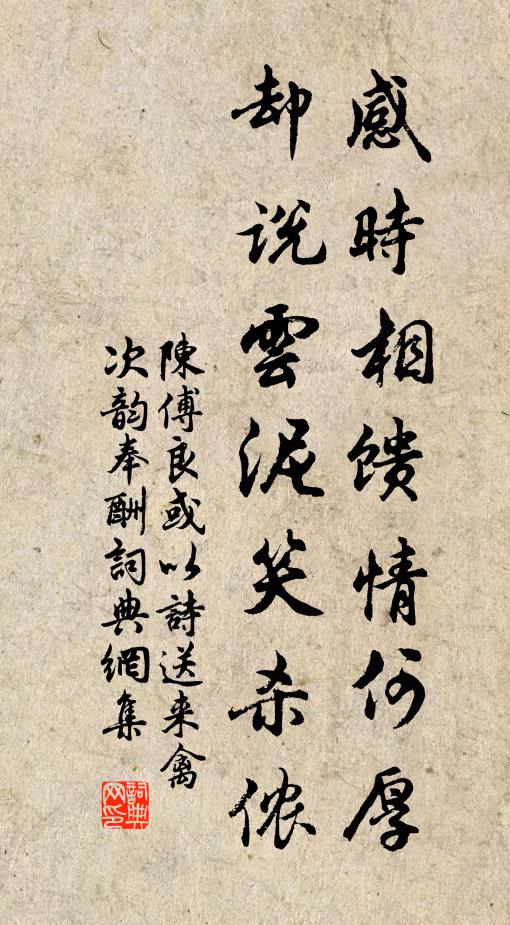 感時相馈情何厚
却説雲泥笑杀侬
陳傅良或以詩送来禽
次韵奉酬詞典網集
詞典网印